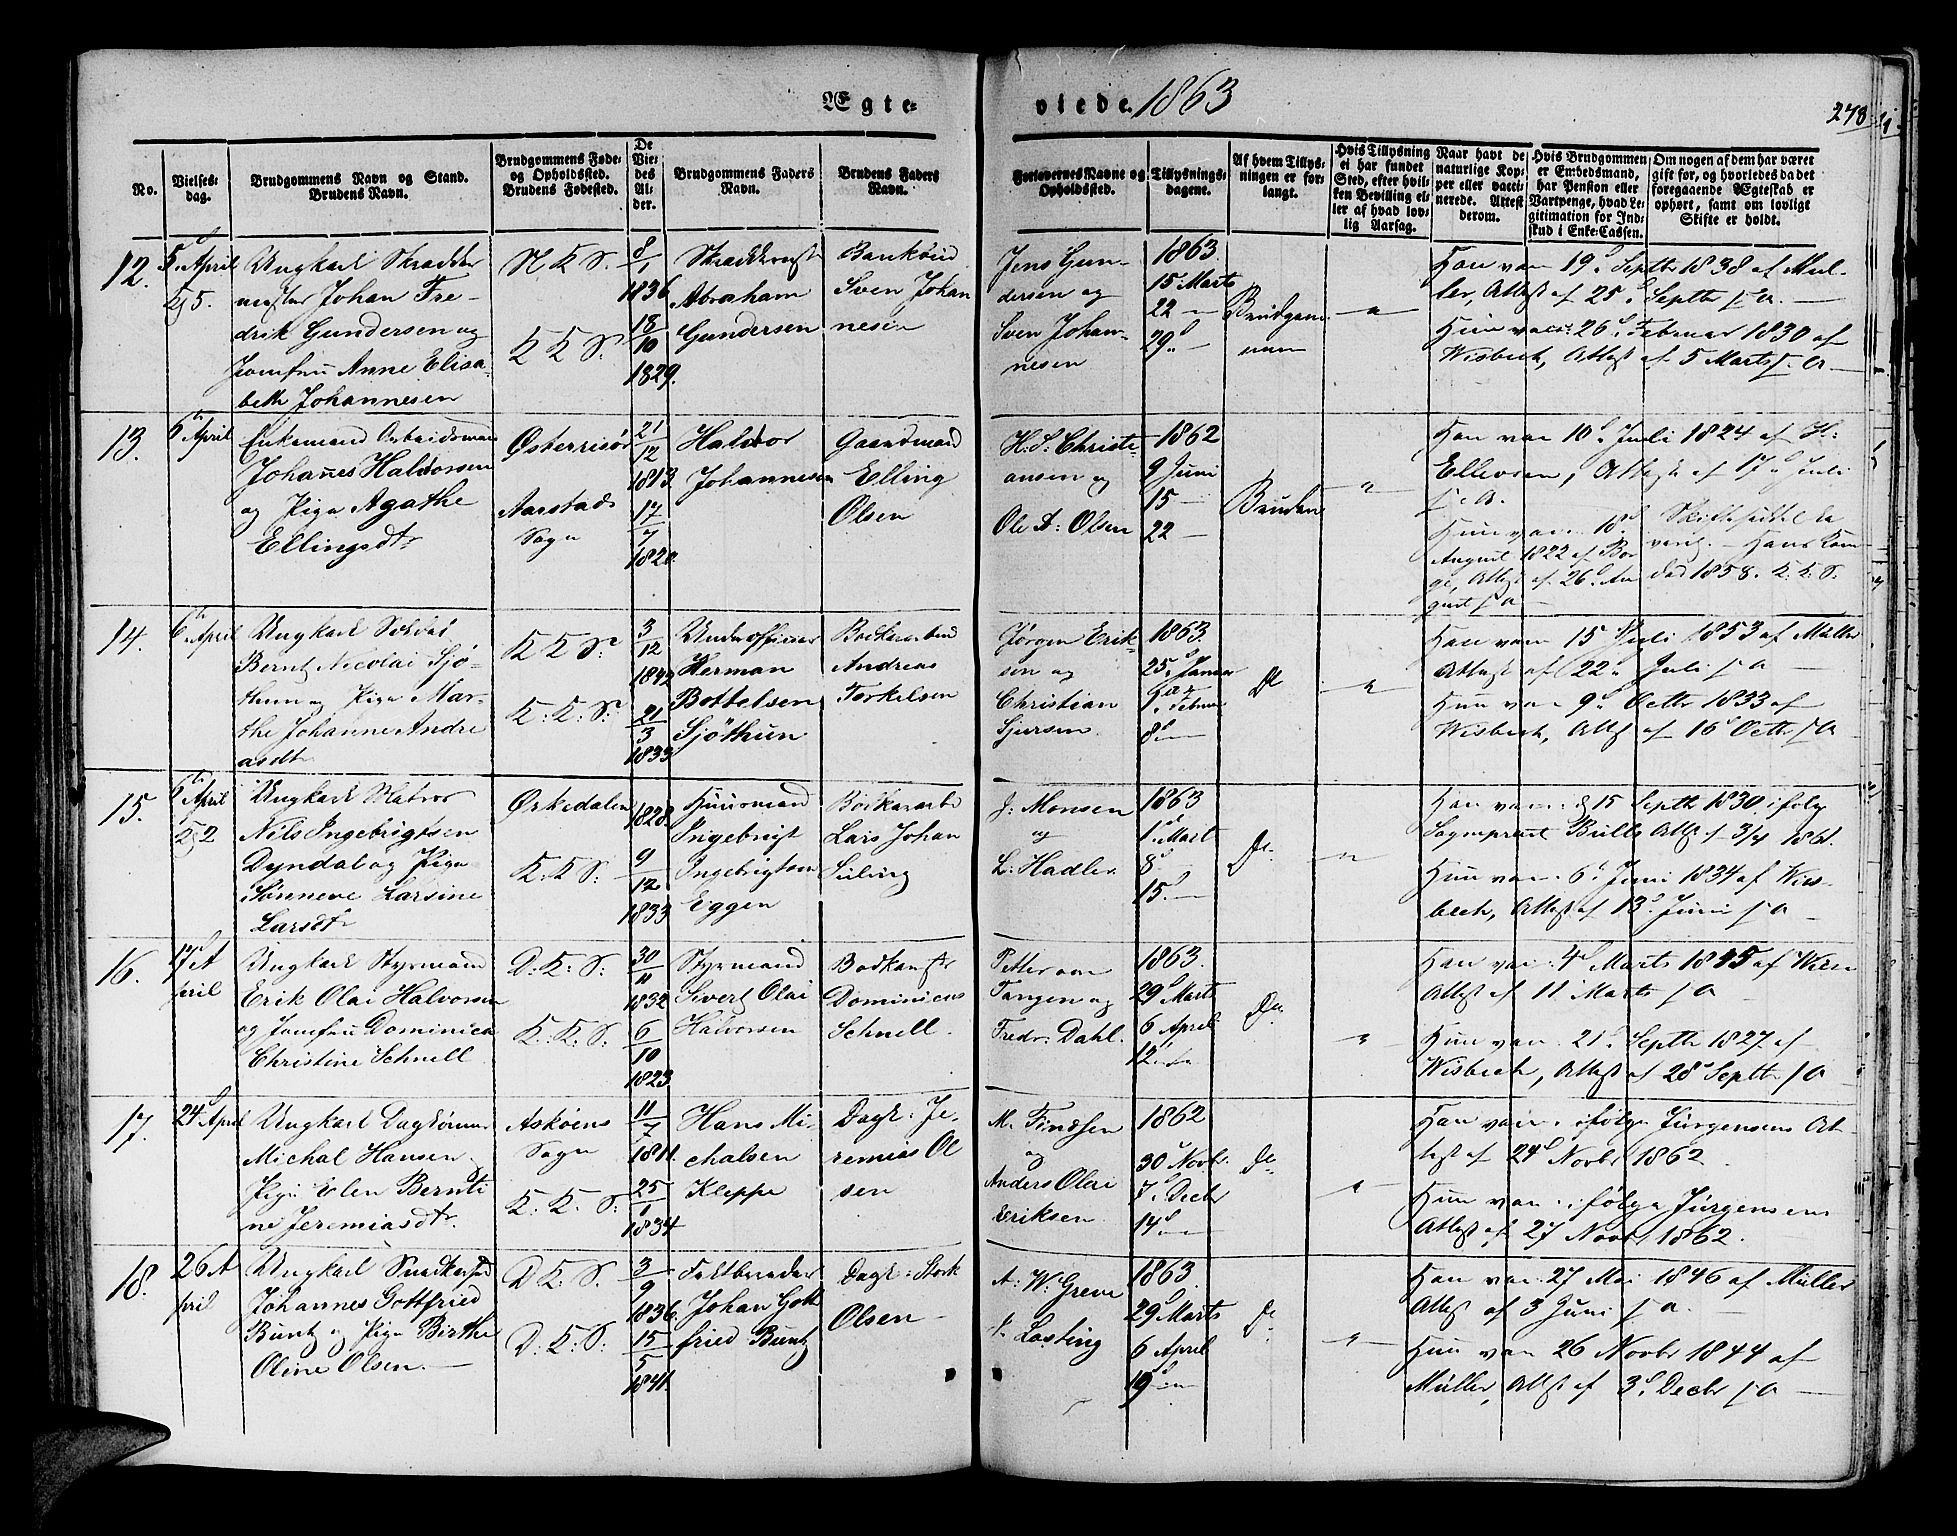 Ægte-
viede 1863
278
No.
Vielses-
dag.
Brudgommens Navn og Stand.
Brudens Navn.
Brudgommens Føde-
og Opholdssted.
Brudens Fødested.
De
Vie-
des
Al-
der.
Brudgommens Faders
Navn.
Brudens Faders
Navn.
Forlovernes Navne og
Opholdssted.
Tillysnings-
dagene.
Af hvem Tillys-
ningen er for-
langt.
Hvis Tillysning
ei har fundet
Sted, efter hvil-
ken Bevilling el-
ler af hvad lov-
lig Aarsag.
Naar havt de
naturlige Kop-
per eller vacci-
nerede. Attest
derom.
Hvis Brudgommen
er Embedsmand,
har Pension eller
Vartpenge, hvad Le-
gitimation for Ind-
skud i Enke-Cassen.
Om nogen af dem har været
gift før, og hvorledes da det
foregaaende Ægteskab er
ophørt, samt om lovligt
Skifte er holdt.
12.
5. April
Ungkarl Skrædder
mester Johan Fre-
drik Gundersen og
Jomfru Anne Elisa-
beth Johannesen
N K S.
K K S.
8/1
1836
18/10
1829.
Abraham
Gundersen
Sven Johan
nesen
Jens Gun-
dersen og
Sven Johan-
nesen
1863.
15 Marts
22 —
29. —
Brudgom-
men
Han var 19. Septbr 1838 af Mül-
ler, Attest af 25. Septbr s. a. —
Hun var 26. Februar 1830 af
Wisbech, Attest af 5 Marts s. a —
13.
6 April
Enkemand Arbeidsmand
Johannes Haldorsen
og Pige Agathe
Ellingsdtr
Østerrisør
Aarstads
Sogn
21/12
1813
17/7
1820.
Haldor
Johannesen
Gaardmand
Elling
Olsen
H. S. Christi-
ansen og
Ole A: Olsen
1862
9 Juni
15 —
22 —
Bruden
Han var 10. Juli 1824 af H.
Ellevsen, Attest af 17. Juli
s. a.
Hun var 18
August 1822 af Bor
ge, Attest af 26. Au
gust s a —
død 1858. K. K. S.
14.
6. April
Ungkarl Soldat
Bernt Nicolai Sjø-
thun og Pige Mar-
the Johanne Andre
asdtr
K K S:
K: K: S:
3/12
1842
21/3
1833
Underofficer
Herman
Bottelsen
Sjöthun
Bødkerarbeid
Andreas
Torkelsen
Jörgen Erik-
sen og
Christian
Sjursen
1863.
25. Januar
1. Februar
8. —
Do
Han var 15 Juli 1853 af Müller
Attest af 22. Juli s a —
Hun var 9. Octbr 1833 af
Wisbech, Attest af 16 Octbr s a
15.
6 April
Ungkarl Matros
Nils Ingebrigtsen
Dyndal og Pige
Sønneve Larsine
Larsdtr
Ørkedalen
K: K S:
1828.
9/12
1833
Huusmand
Ingebrigt
Ingebrigtsen
Eggen
Bødkerarbe
Lars Johan
J: Monsen
og
L. Hadler
1863
1. Mart
8
15. —
Do.
Han var 15 Septbr 1830 ifølge
Sognepræst Bulls Attest 3/4 1861.
Hun var 6. Juni 1834 af Wis-
bech, Attest af 13. Juni s a —
16.
17 A
pril
Ungkarl Styrmand
Erik Olai Halvorsen
og Jomfru Dominica
Christine Schnell.
D: K: S.
K: K: S:
30/11
1832
6/10
1823
Styrmand
Sivert Olai
Halvorsen
Dominicus
Schnell.
Petter von
Tangen og
Fredr: Dahl.
1863.
29 Marts
6 April
12. —
Do.
Han var 4 Marts 1835 af
Attest af 11 Marts s a —
Hun var 21. Septbr 1827. af
Wisbech, Attest af 28 Septbr s a
17.
24 April
Ungkarl
Michal Hansen
Pige Elen Bernti
ne Jeremiasdtr.
Askøens
Sogn
K: K: S:
11/7
1811.
25/1
1834
Hans Mi-
chalsen
Kleppe
Dagk: Je-
remias Ol
sen
M. Findsen
og
Anders Olai
Eriksen
1862
30 Novbr.
7. Decbr
14 —
Do
Han var ifølge Jürgensens At-
test af 24 Novbr 1862
Hun var ifølge Jürgensens
Attest af 27 Novbr 1862.
18.
26 A
pril
Ungkarl Snedkersvd
Johannes Gottfried
Buntz og Pige Birthe
Oline Olsen. —
D K: S.
D: K: S:
3/9
1836.
15/5
1841.
Feltbereder
Johan Gott
fried Buntz
Dagk: Stork
Olsen —
A: W: Greve
Losting
1863.
29 Marts
6 April
19 —
Do
Han var 27 Mai 1846 af Müller
Attest af 3 Juni s a. —
Hun var 26 Novbr 1844 af
Müller, Attest af 3. Decbr s a —